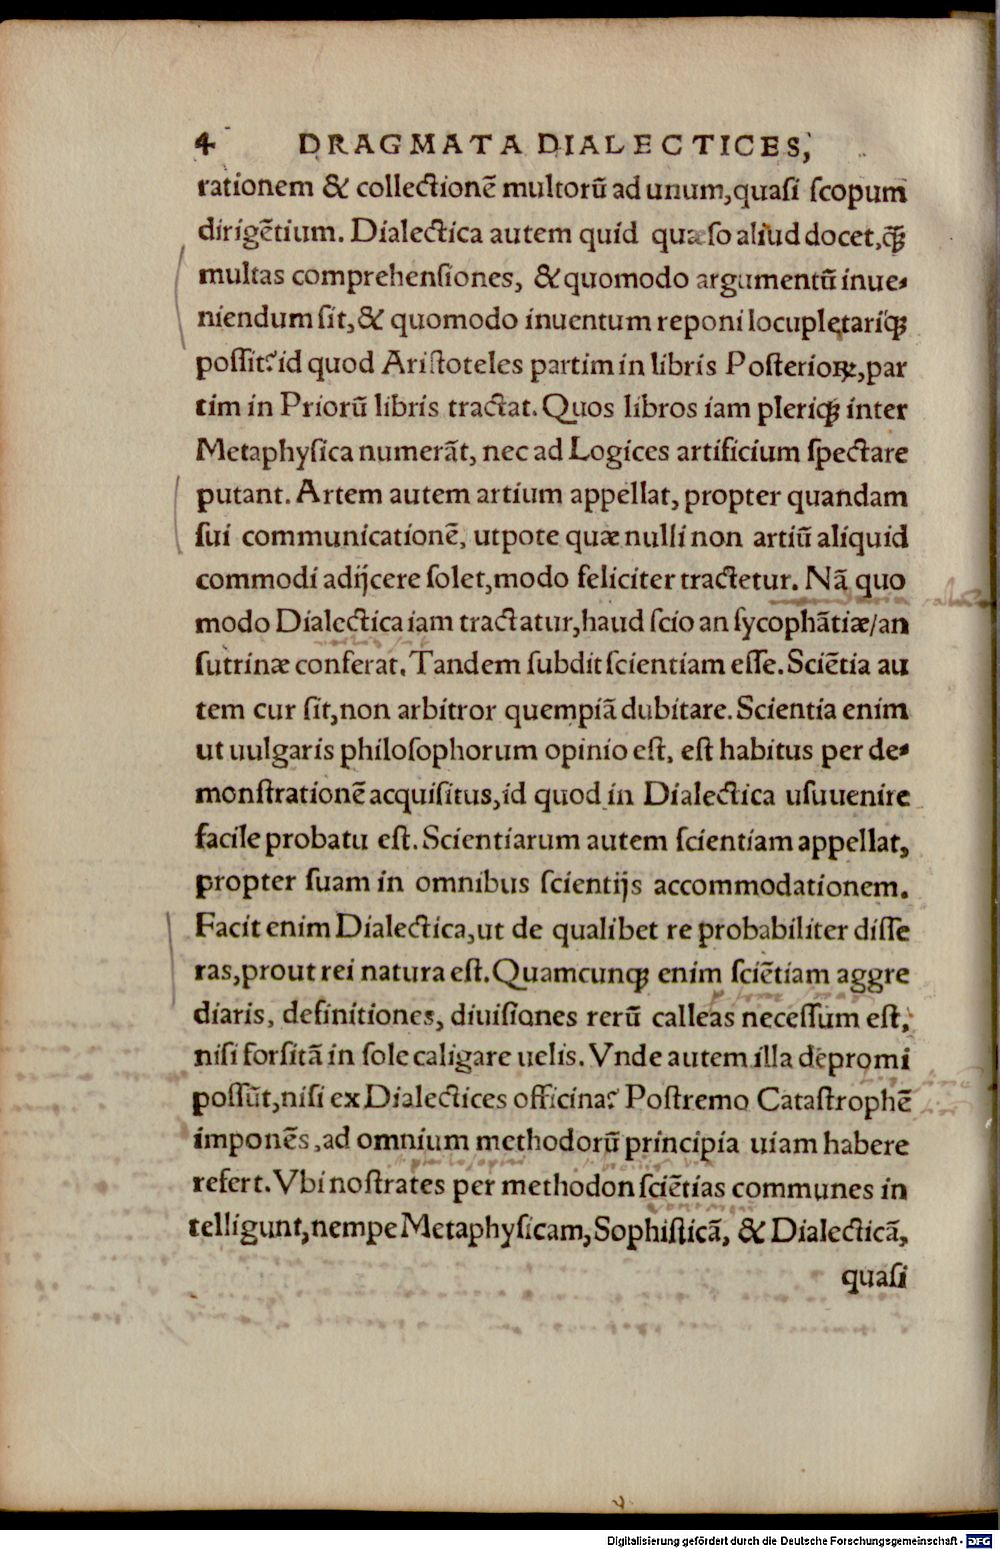 4 DRAGMATA DIALECTICES,
rationem & collectionē multorū ad unum, quasi scopum
dirigētium. Dialectica autem quid quæso aliud docet, q̄ꝫ
multas comprehensiones, & quomodo argumentū inue-
niendum sit, & quomodo inuentum reponi locupletariqꝫ
possit? id quod Aristoteles partim in libris Posterioꝝ, par
tim in Priorū libris tractat. Quos libros iam pleriqꝫ inter
Metaphysica numerāt, nec ad Logices artificium spectare
putant. Artem autem artium appellat, propter quandam
sui communicationē, utpote quæ nulli non artiū aliquid
commodi adijcere solet, modo feliciter tractetur. Nā quo
modo Dialectica iam tractatur, haud scio an sycophātiæ/an
sutrinæ conferat. Tandem subdit scientiam esse. Sciētia au
tem cur sit, non arbitror quempiā dubitare. Scientia enim
ut uulgaris philosophorum opinio est, est habitus per de-
monstrationē acquisitus, id quod in Dialectica usuuenire
facile probatu est. Scientiarum autem scientiam appellat,
propter suam in omnibus scientijs accommodationem.
Facit enim Dialectica, ut de qualibet re probabiliter disse
ras, prout rei natura est. Quamcunqꝫ enim sciētiam aggre
diaris, definitiones, diuisiones rerū calleas necessum est,
nisi forsitā in sole caligare uelis. Vnde autem illa depromi
possūt, nisi ex Dialectices officina? Postremo Catastrophē
imponēs, ad omnium methodorū principia uiam habere
refert. Vbi nostrates per methodon sciētias communes in
telligunt, nempe Metaphysicam, Sophisticā, & Dialecticā,
quasi
Digitalisierung gefördert durch die Deutsche Forschungsgemeinschaft - DFG